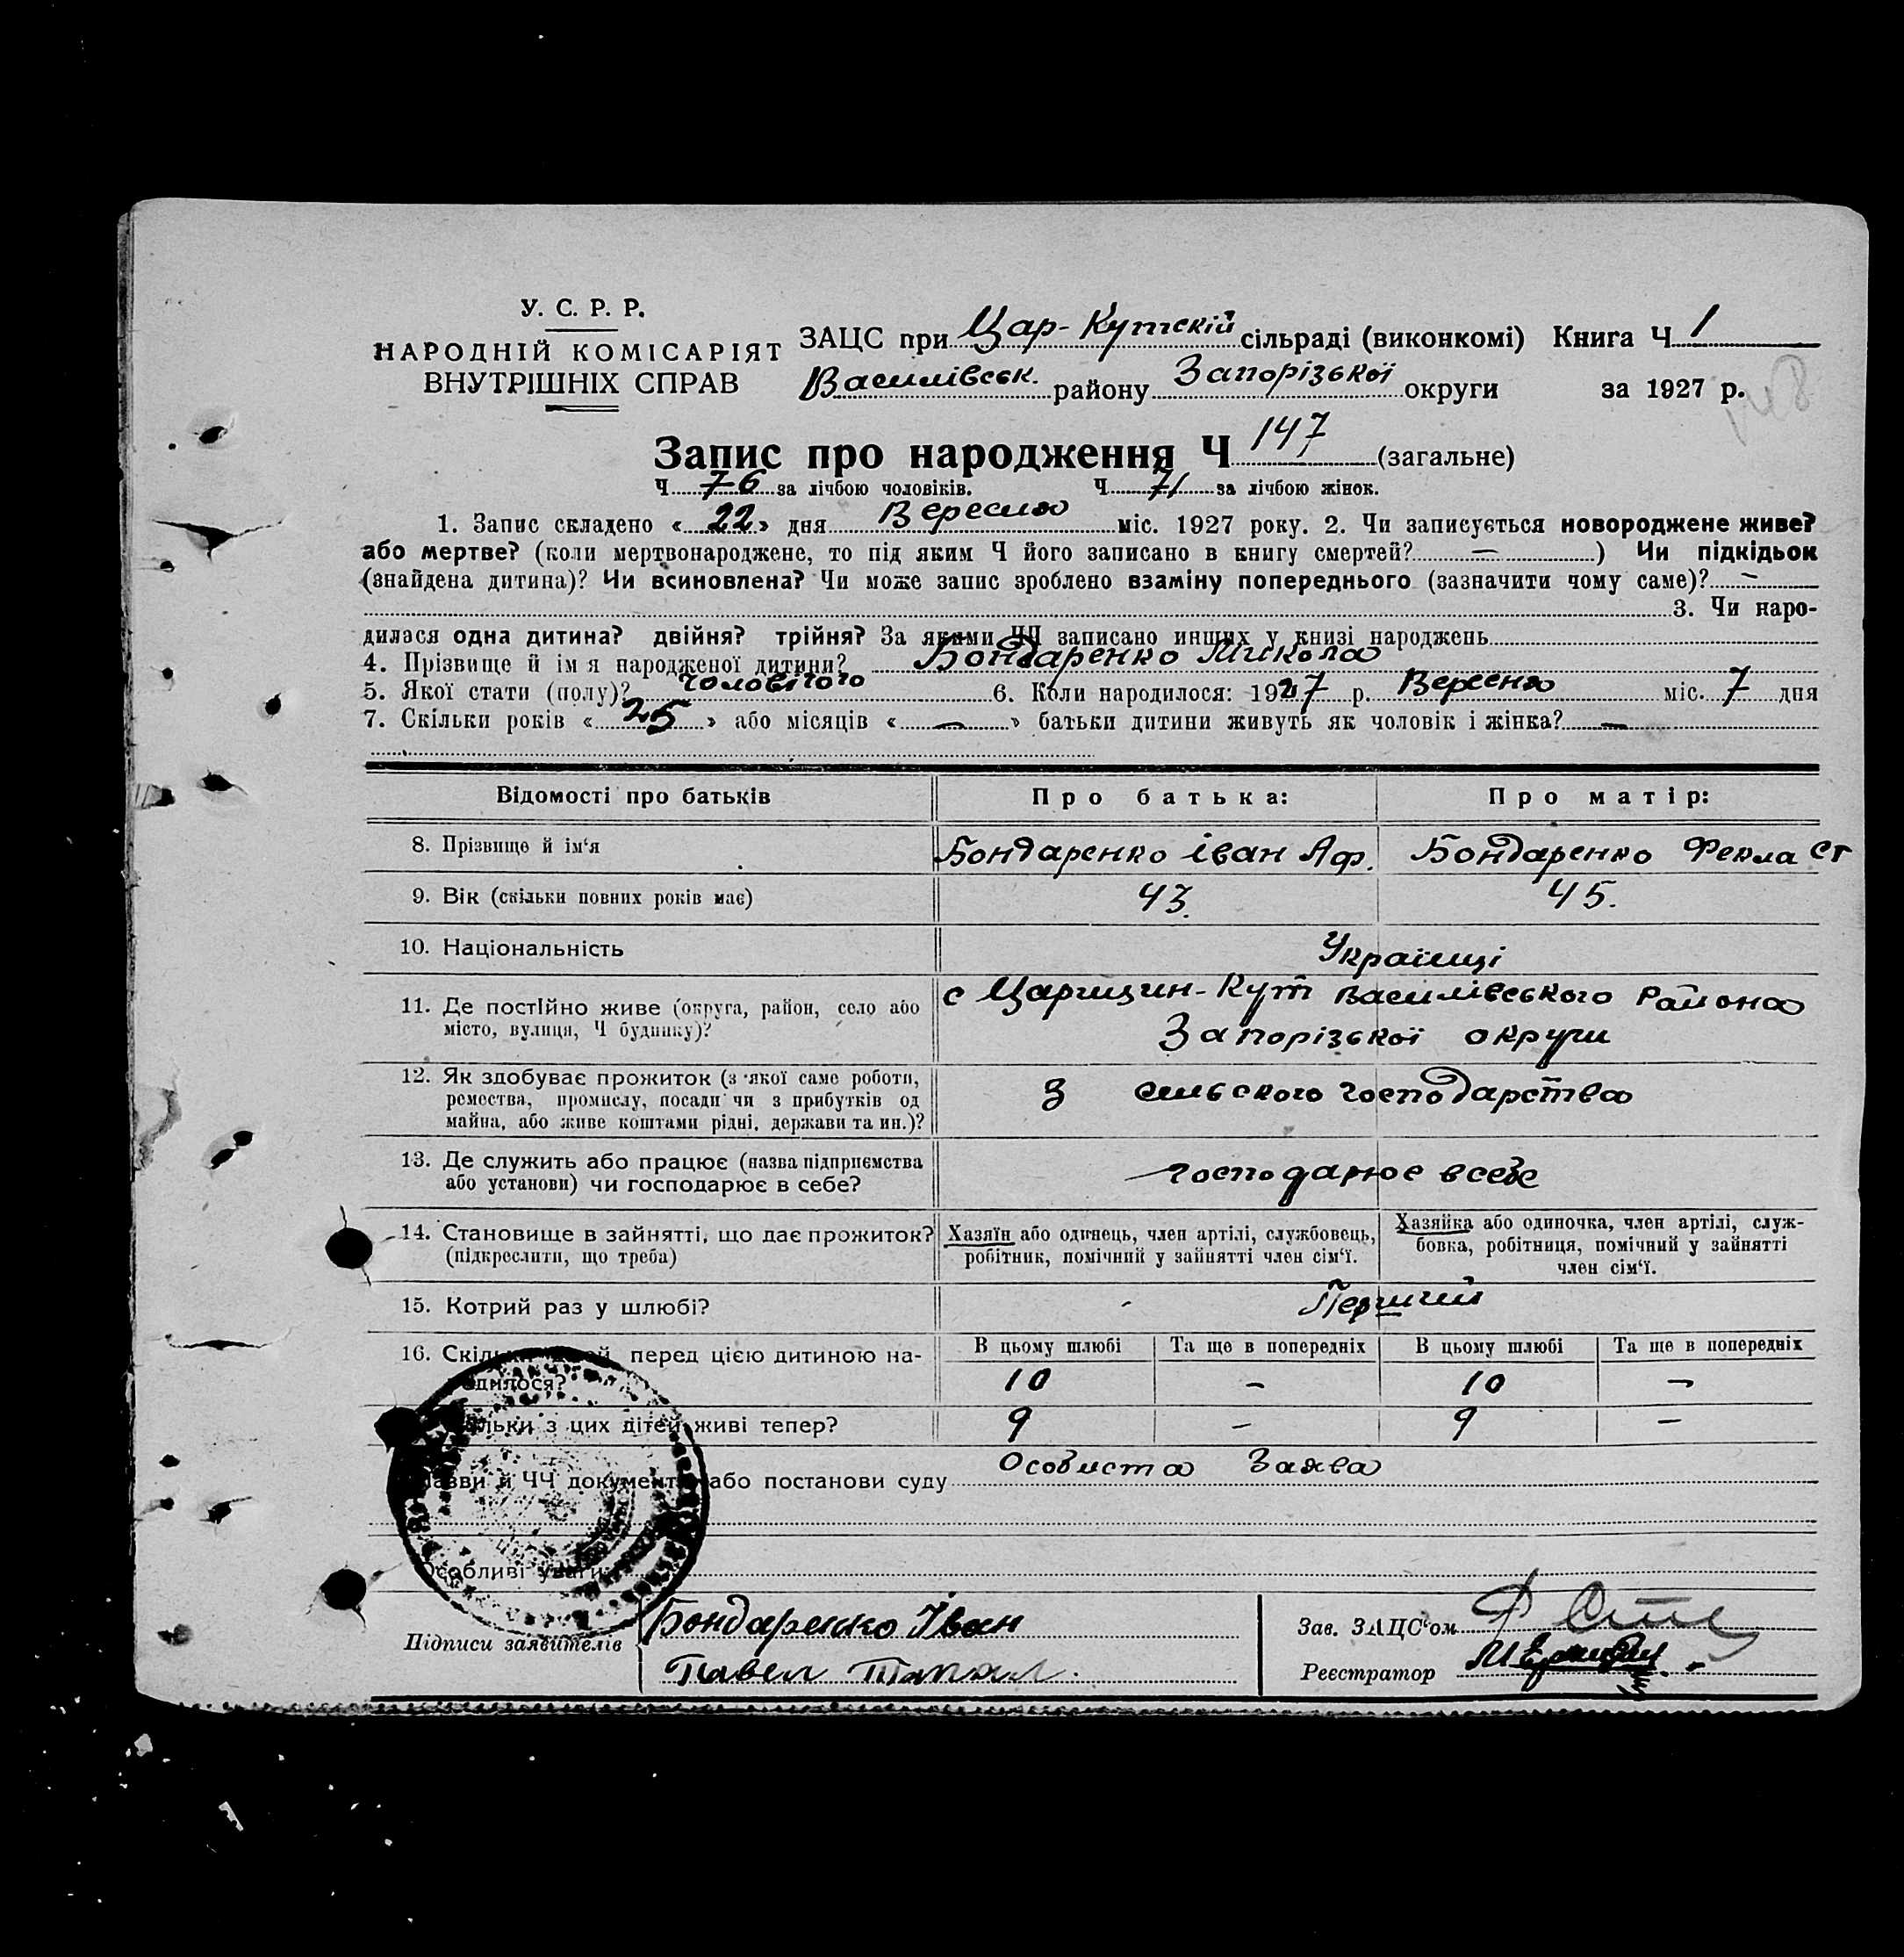 У. С. Р. Р.
НАРОДНІЙ КОМІСАРІЯТ
ВНУТРІШНІХ СПРАВ
ЗАЦС при Цар-Кутскій сільраді (виконкомі) Книга Ч 1
Василівськ. району Запорізької округи за 1927 р.
Запис про народження Ч 147 (загальне)
Ч 76 за лічбою чоловіків. Ч 71 за лічбою жінок.
1. Запис складено «22» дня Вересня міс. 1927 року. 2. Чи записується новороджене живе?
або мертве? (коли мертвонароджене, то під яким Ч його записано в книгу смертей? —) Чи підкідьок
(знайдена дитина)? Чи всиновлена? Чи може запис зроблено взаміну попереднього (зазначити чому саме)? —
3. Чи наро-
дилася одна дитина? двійня? трійня? За якими ЧЧ записано инших у книзі народжень
4. Прізвище й ім я народженої дитини? Бондаренко Микола
5. Якої стати (полу)? чоловічого 6. Коли народилося: 1927 р. Вересня міс. 7 дня
7. Скільки років «25» або місяців «—» батьки дитини живуть як чоловік і жінка? —
Відомості про батьків Про батька: Про матір:
8. Прізвище й ім‘я Бондаренко Іван Аф. Бондаренко Фекла Ст
9. Вік (скільки повних років має) 43. 45.
10. Національність Українці
11. Де постійно живе (округа, район, село або
місто, вулиця, Ч будинку)?
с Царицин-Кут Василівського Района
Запорізької округи
12. Як здобуває прожиток (з якої саме роботи,
ремества, промислу, посади чи з прибутків од
майна, або живе коштами рідні, держави та ин.)?
З сильского господарства
13. Де служить або працює (назва підприємства
або установи) чи господарює в себе?
господарює в себе
14. Становище в зайнятті, що дає прожиток?
(підкреслити, що треба)
Хазяїн або одинець, член артілі, службовець,
робітник, помічний у зайнятті член сім‘ї.
Хазяйка або одиночка, член артілі, служ-
бовка, робітниця, помічний у зайнятті
член сім‘ї.
15. Котрий раз у шлюбі? Перший
16. перед цією дитиною на-
родилося?
В цьому шлюбі Та ще в попередніх В цьому шлюбі Та ще в попередніх
10 — 10 —
з цих дітей живі тепер? 9 — 9 —
й ЧЧ документа або постанови суду Особиста Заява
Особливі уваги
Підписи заявителів
Бондаренко Іван
Павел
Зав. ЗАЦС‘ом
Реєстратор